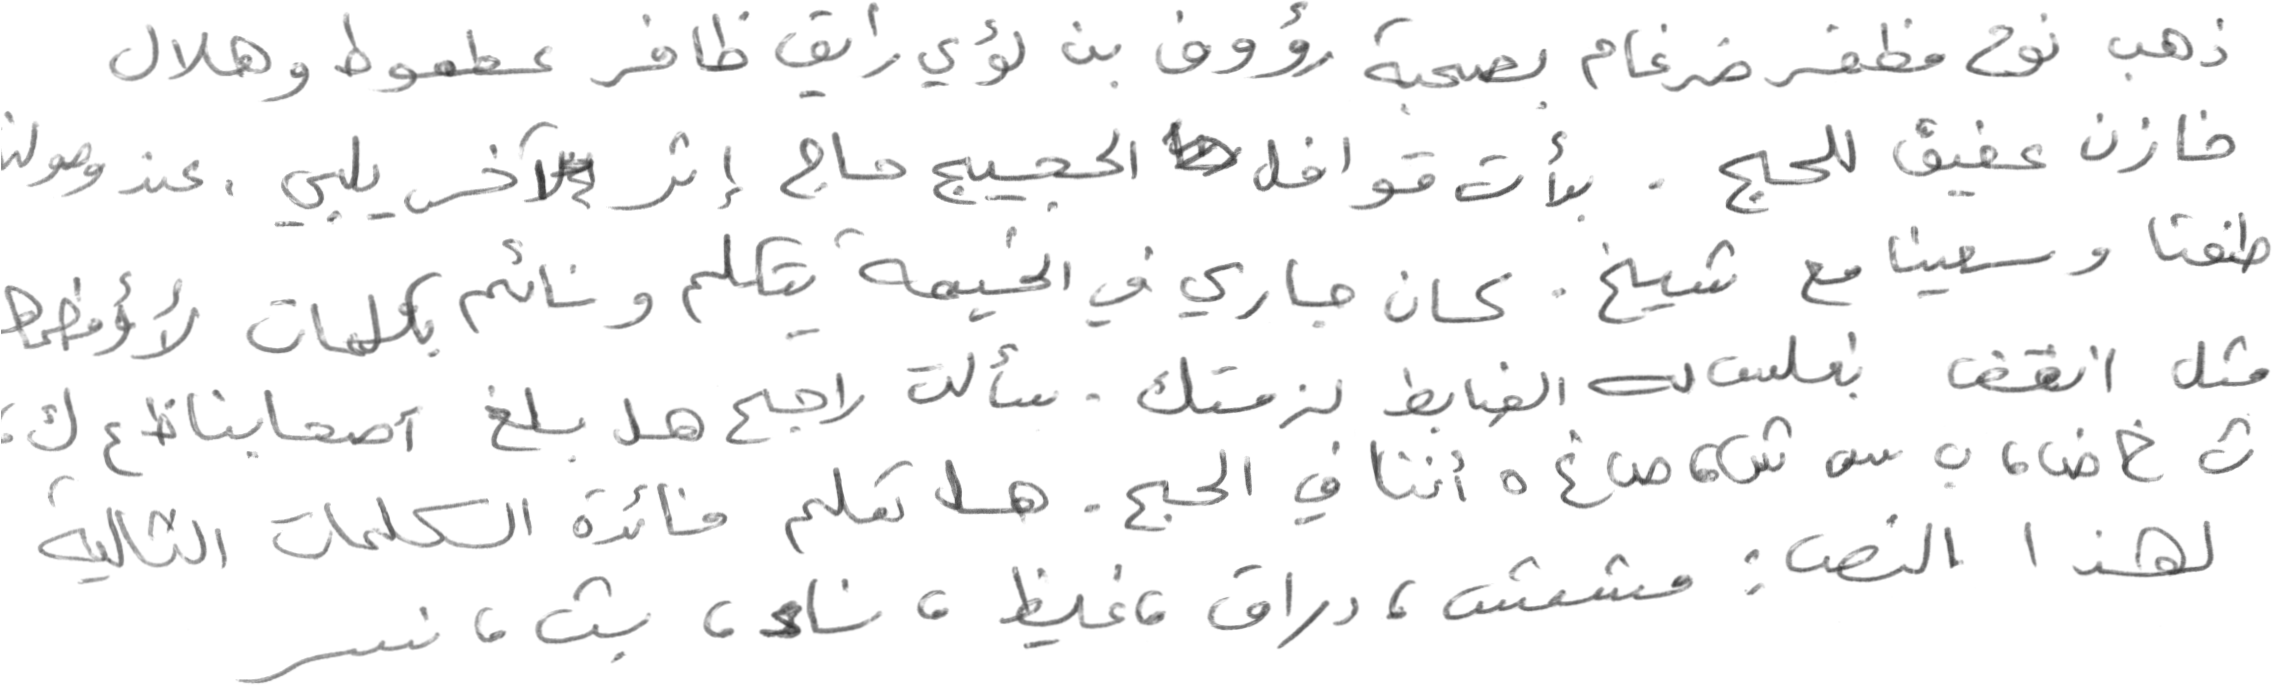 ذهب نوح مظفر ضرغام بصحبة رؤوف بن لؤي رائق ظافر عطعوط وهلال
خازن عفيف للحج . بدأت قوافل الحجيج حاج إثر الآخر يلبي . عند وصولنا
طفنا وسعينا مع شيخ . كان جاري في الخيمة يتكلم ونائم بكلمات لا
مثل انقض بغلس الضابط لزمتك . سألت راجح هل بلغ أصحابنا ظ ع ك ،
ث خ ض ، ب س ش ، ص غ ه أننا في الحج . هل تعلم فائدة الكلمات التالية
لهذا النص : مشمش ، دراق ، غليظ ، ناء ، بث ، نسر